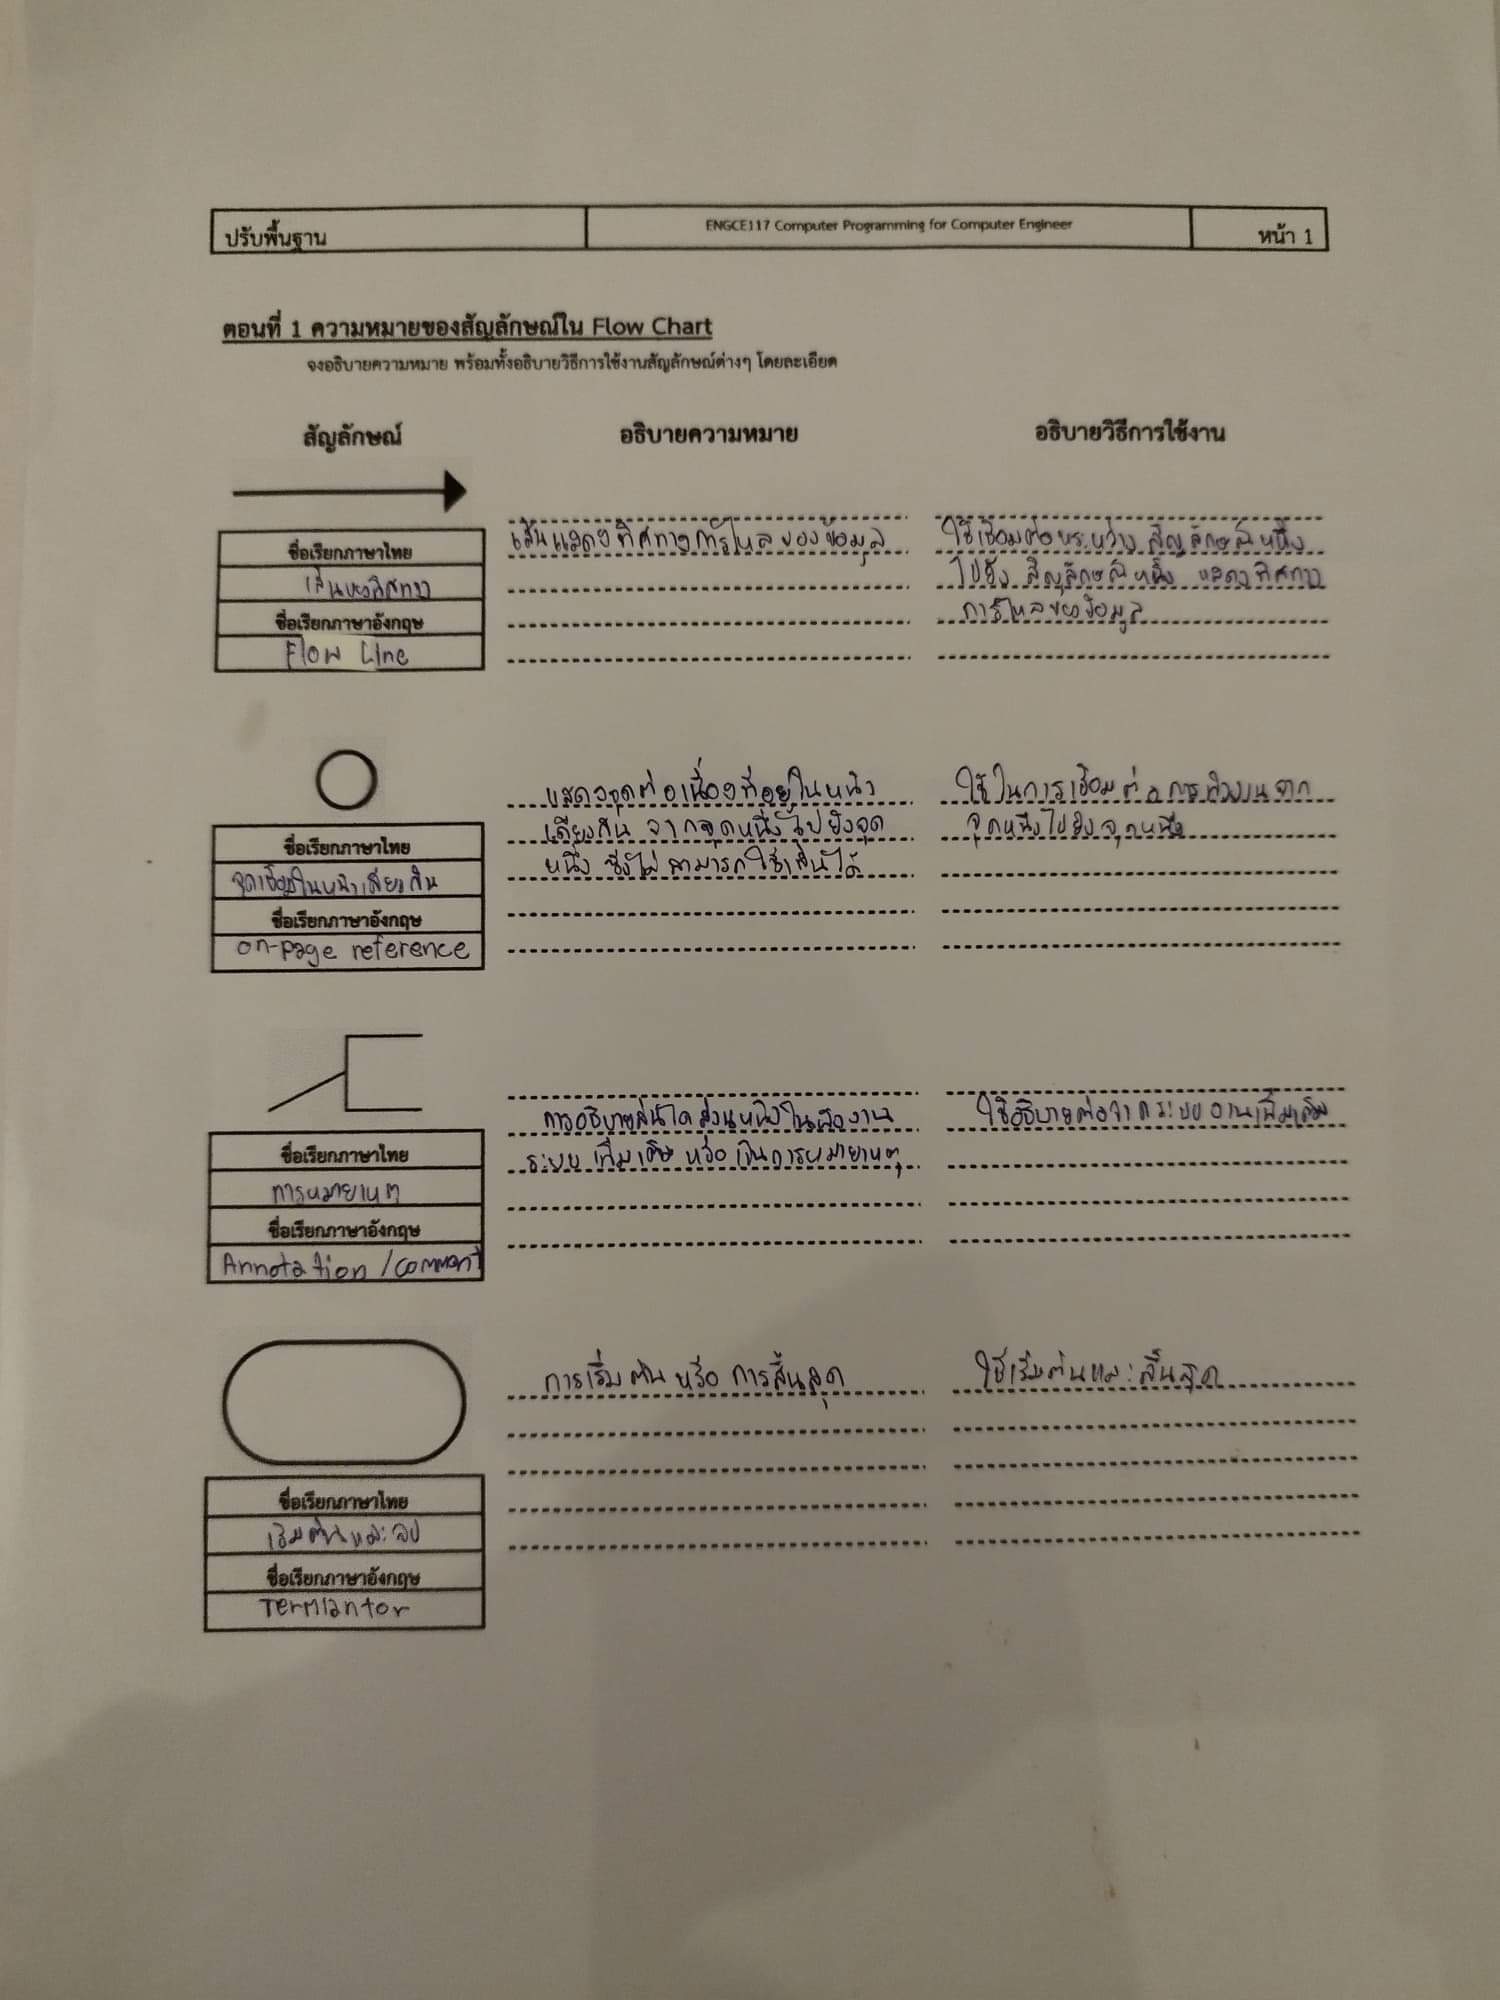 ปรับพื้นฐาน
ENGCE117 Computer Programming for Computer Engineer
หน้า 1
ตอนที่ 1 ความหมายของสัญลักษณ์ใน Flow Chart
จงอธิบายความหมาย พร้อมทั้งอธิบายวิธีการใช้งานสัญลักษณ์ต่างๆ โดยละเอียด
สัญลักษณ์
อธิบายความหมาย
อธิบายวิธีการใช้งาน
ชื่อเรียกภาษาไทย
ชื่อเรียกภาษาอังกฤษ
Flow Line
เส้นแสดงทิศทางการไหลของข้อมูล
ใช้เชื่อมต่อระหว่าง สัญลักษณ์หนึ่ง
ไปยัง สัญลักษณ์หนึ่ง แสดงทิศทาง
การไหลของข้อมูล
ชื่อเรียกภาษาไทย
จุดเชื่อมในหน้าเดียวกัน
ชื่อเรียกภาษาอังกฤษ
on-page reference
แสดงจุดต่อเนื่องที่อยู่ในหน้า
เดียวกัน จากจุดหนึ่งไปยังจุด
หนึ่ง ซึ่งไม่สามารถใช้เส้นได้
ใช้ในการเชื่อมต่อการทำงานจาก
จุดหนึ่งไปยังจุดหนึ่ง
ชื่อเรียกภาษาไทย
การหมายเหตุ
ชื่อเรียกภาษาอังกฤษ
Annotation /comment
การอธิบายส่วนใดส่วนหนึ่งในผังงาน
ระบบ เพิ่มเติม หรือ เป็นการหมายเหตุ
ใช้อธิบายต่อจากระบบงานเพิ่มเติม
ชื่อเรียกภาษาไทย
เริ่มต้นและจบ
ชื่อเรียกภาษาอังกฤษ
Termiantor
การเริ่มต้น หรือ การสิ้นสุด
ใช้เริ่มต้นและสิ้นสุด